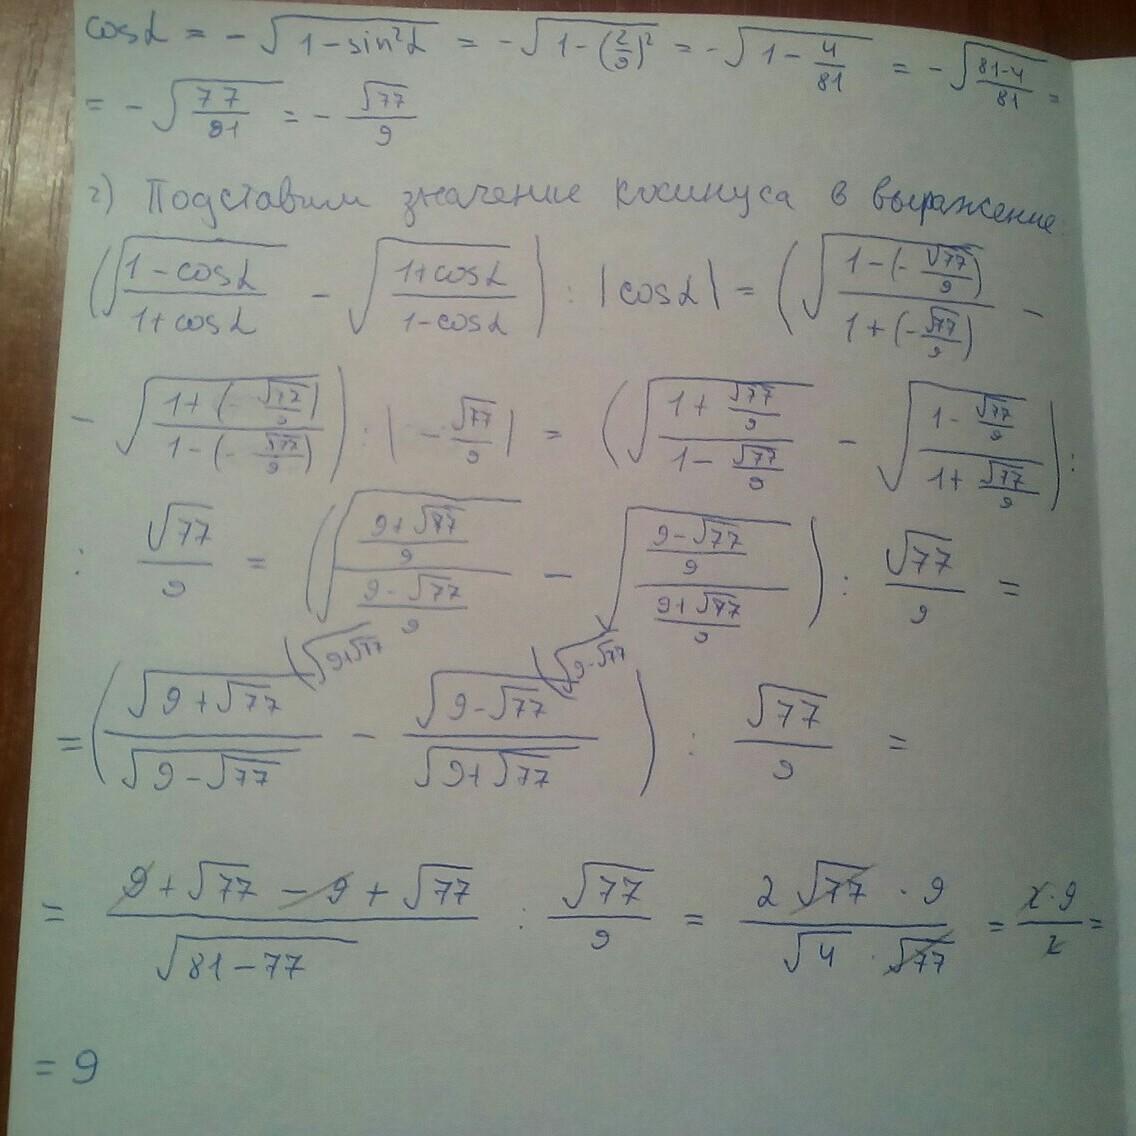 cosα = -√(1-sin²α) = -√(1-(2/9)²) = -√(1-4/81) = -√((81-4)/81) =
= -√(77/81) = -√77/9
2) Подставим значение косинуса в выражение:
(√((1-cosα)/(1+cosα)) - √((1+cosα)/(1-cosα))) : |cosα| = (√((1-(-√77/9))/(1+(-√77/9))) -
- √((1+(-√77/9))/(1-(-√77/9)))) : |-√77/9| = (√((1+√77/9)/(1-√77/9)) - √((1-√77/9)/(1+√77/9))) :
: √77/9 = (√(((9+√77)/9)/((9-√77)/9)) - √(((9-√77)/9)/((9+√77)/9))) : √77/9 =
= (√(9+√77)/√(9-√77) \√(9+√77) - √(9-√77)/√(9+√77) \√(9-√77)) : √77/9 =
= (9+√77-9+√77)/√(81-77) : √77/9 = (2√77·9)/(√4·√77) = (2·9)/2 =
= 9